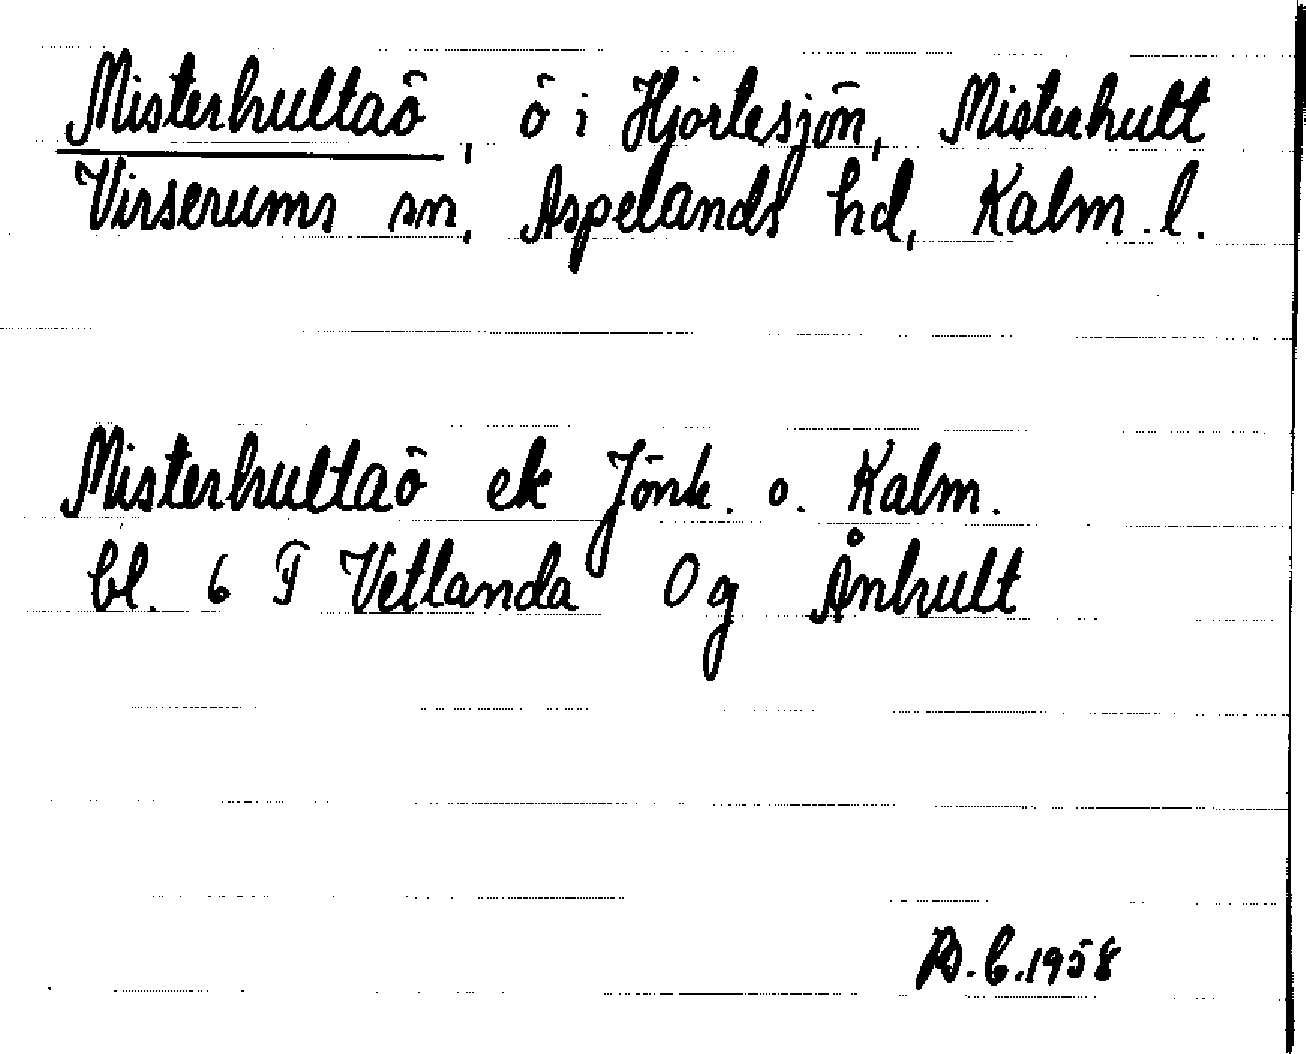 Misterhultaö, ö i Hjortesjön, Misterhult
Virserums sn, Aspelands hd, Kalm. l.
Misterhultaö ek Jönk. o. Kalm.
bl. 6 F Vetlanda Og Ånhult
1958